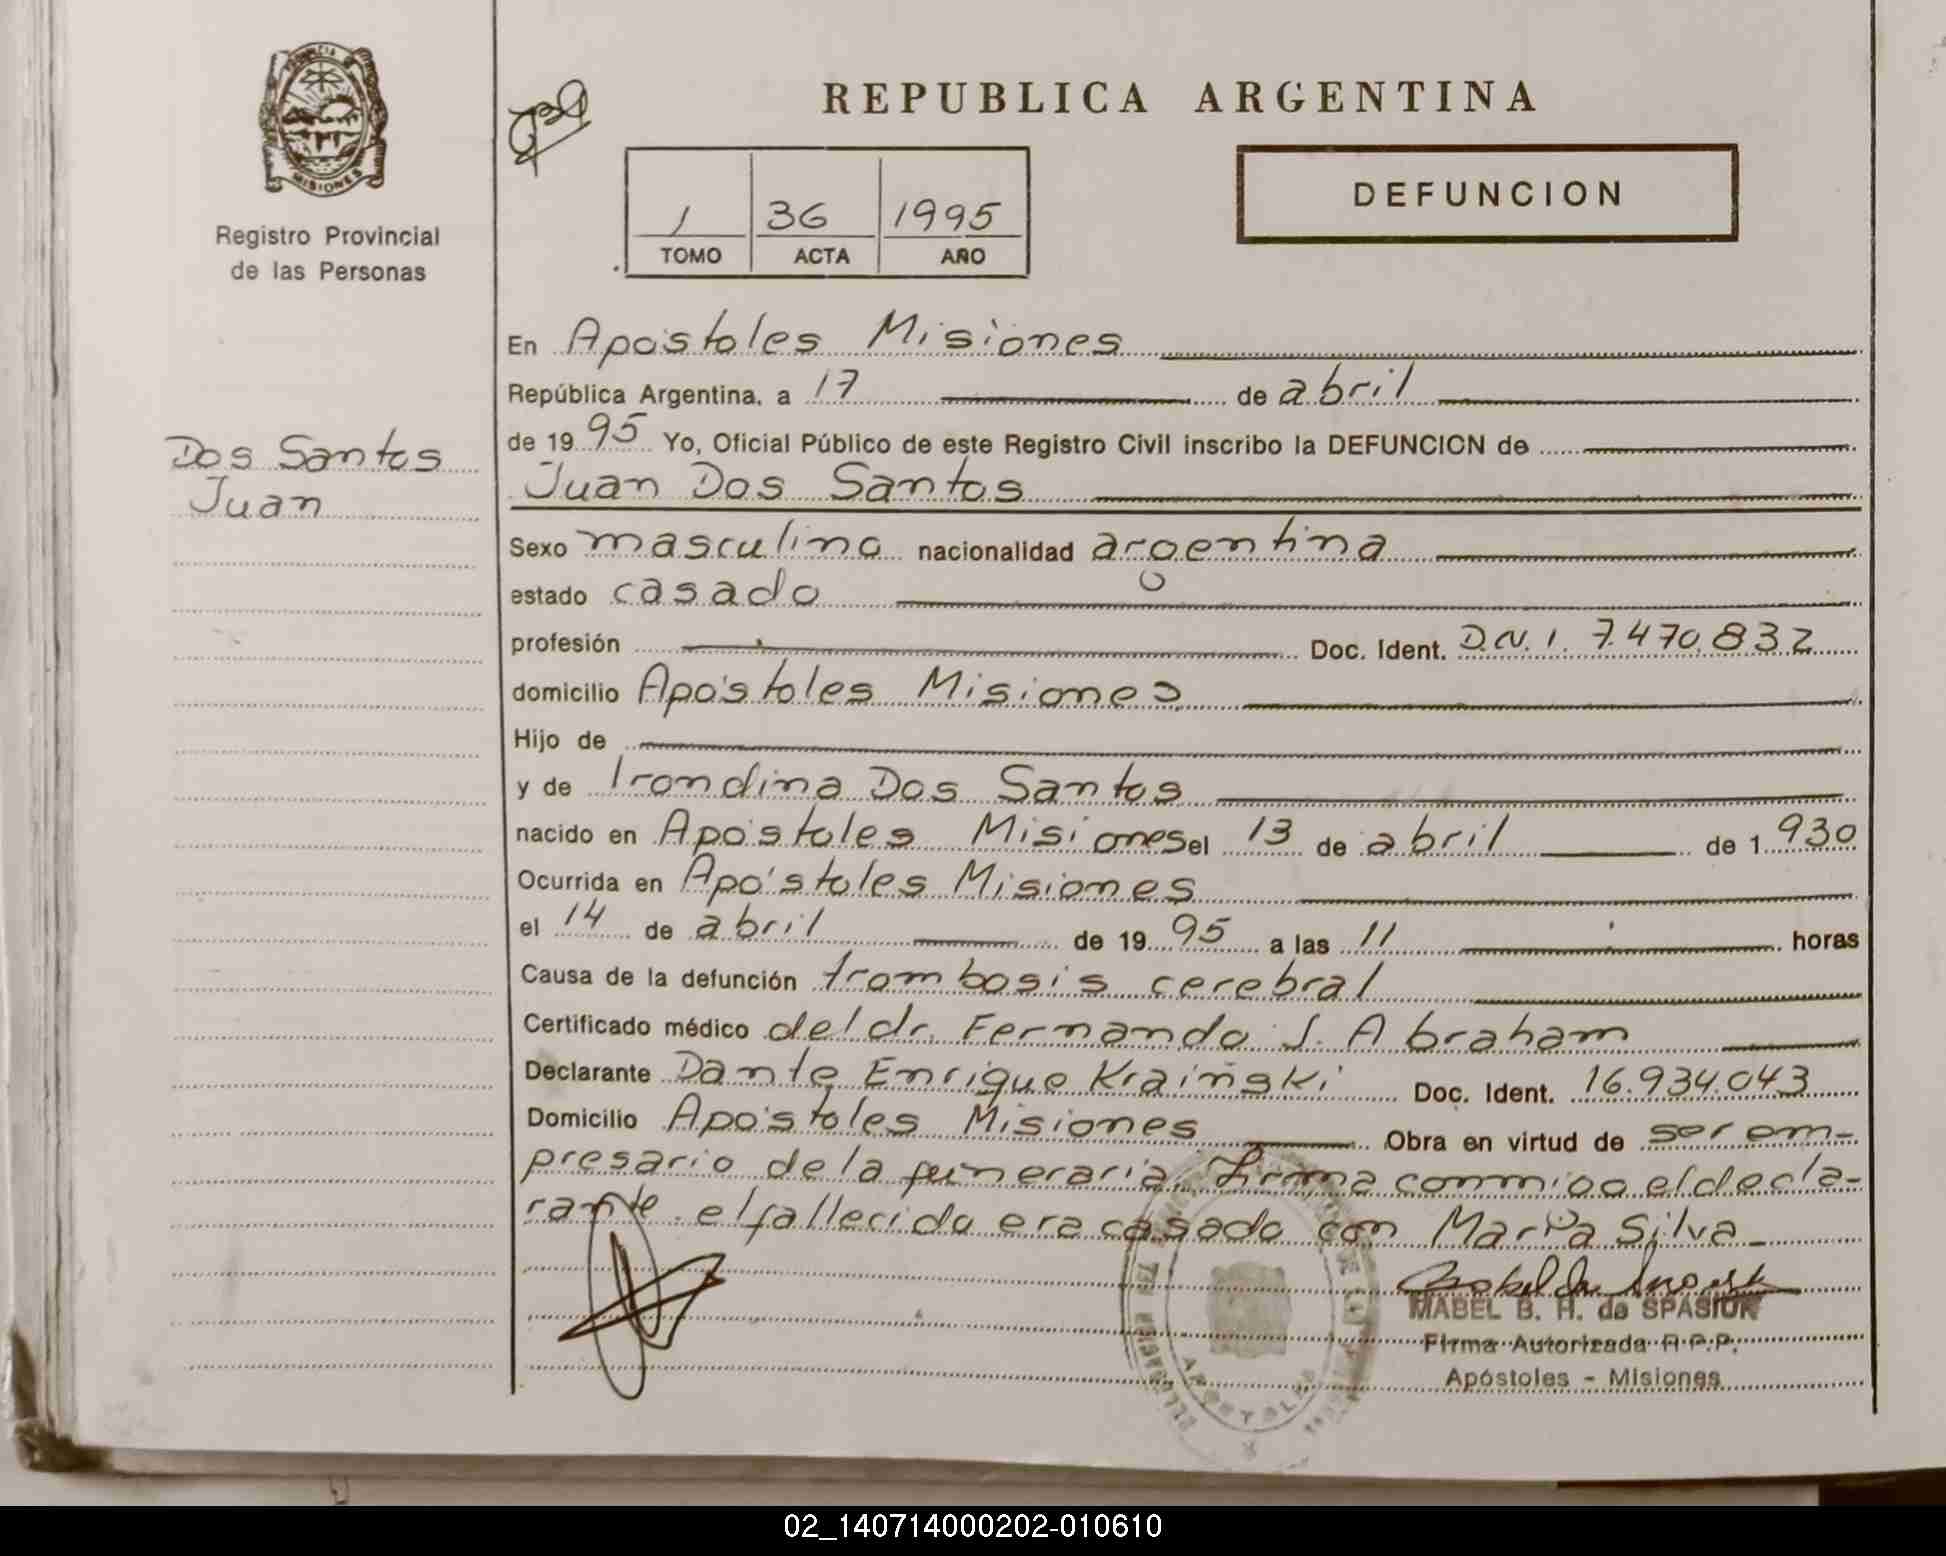 MISIONES
Registro Provincial
de las Personas
REPUBLICA ARGENTINA
1 36 1995
TOMO ACTA AÑO
DEFUNCION
Dos Santos
Juan
En Apóstoles Misiones
República Argentina, a 17 de abril
de 1995 Yo, Oficial Público de este Registro Civil inscribo la DEFUNCION de
Juan Dos Santos
Sexo masculino nacionalidad argentina
estado casado
profesión Doc. Ident. D.N.I. 7.470.832
domicilio Apóstoles Misiones
Hijo de
y de Irondina Dos Santos
nacido en Apóstoles Misiones el 13 de abril de 1930
Ocurrida en Apóstoles Misiones
el 14 de abril de 1995 a las 11 horas
Causa de la defunción trombosis cerebral
Certificado médico del dr. Fernando J. Abraham
Declarante Dante Enrique Kraiñski Doc. Ident. 16.934.043
Domicilio Apóstoles Misiones Obra en virtud de ser em-
presario de la funeraria. Firma conmigo el decla-
rante. el fallecido era casado con María Silva
MABEL B. H. de SPASIUK
Firma Autorizada R.P.P.
Apóstoles - Misiones
APOSTOLES
02_140714000202-010610